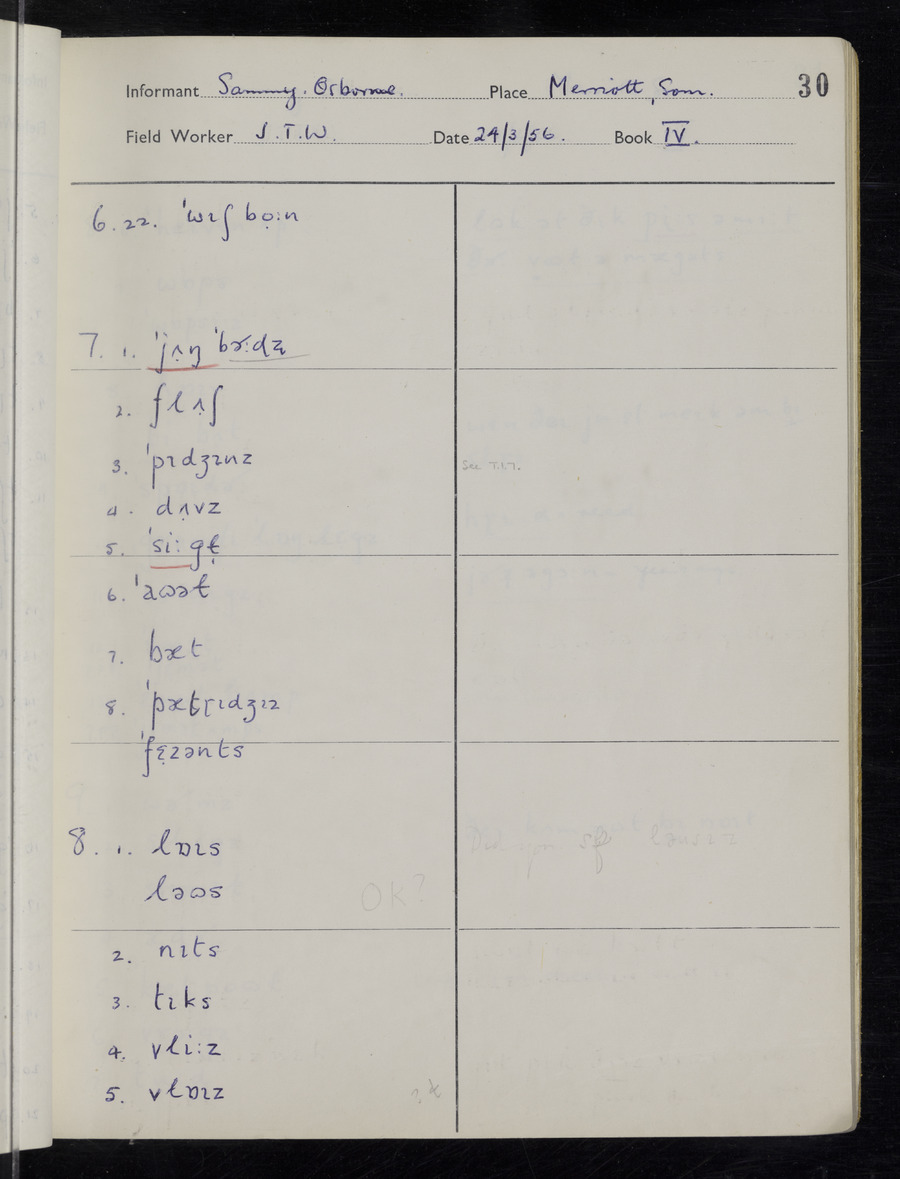 Informant Sammy. Osborne. Place Merriott, Som. 30
Field Worker S.T.W. Date 24/3/56. Book IV.
6.22. ˈwɪʃ bo̞ːn
7. 1. ˈjʌ̣ŋ ˈbɚːdʐ
2. flʌ̣ʃ
3. ˈpɪdʒɪnz
See 7.1.7.
4. dʌ̣vz
5. ˈsiːgɫ̩
6. ˈaɷəɫ
7. bæt
8. ˈpætɽɪdʒɪz
ˈfɛ̣zənts
8. 1. lɒɪs
ləɷs OK?
2. nɪts
3. tɪks
4. vliːz
5. vlɒɪz